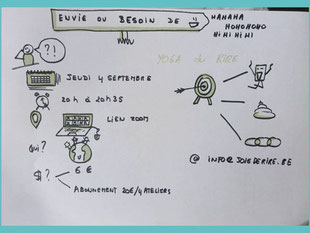 ENVIE OU BESOIN DE
HAHAHA
HOHOHOHO
Hi Hi Hi Hi
?!
YOGA du RIRE
JEUDI 4 SEPTEMBRE
20h à 20h35
LIEN ZOOM
QUI?
6 €
$?
ABONNEMENT 20€/4 ATELIERS
@ INFO@JOIEDERIRE.BE